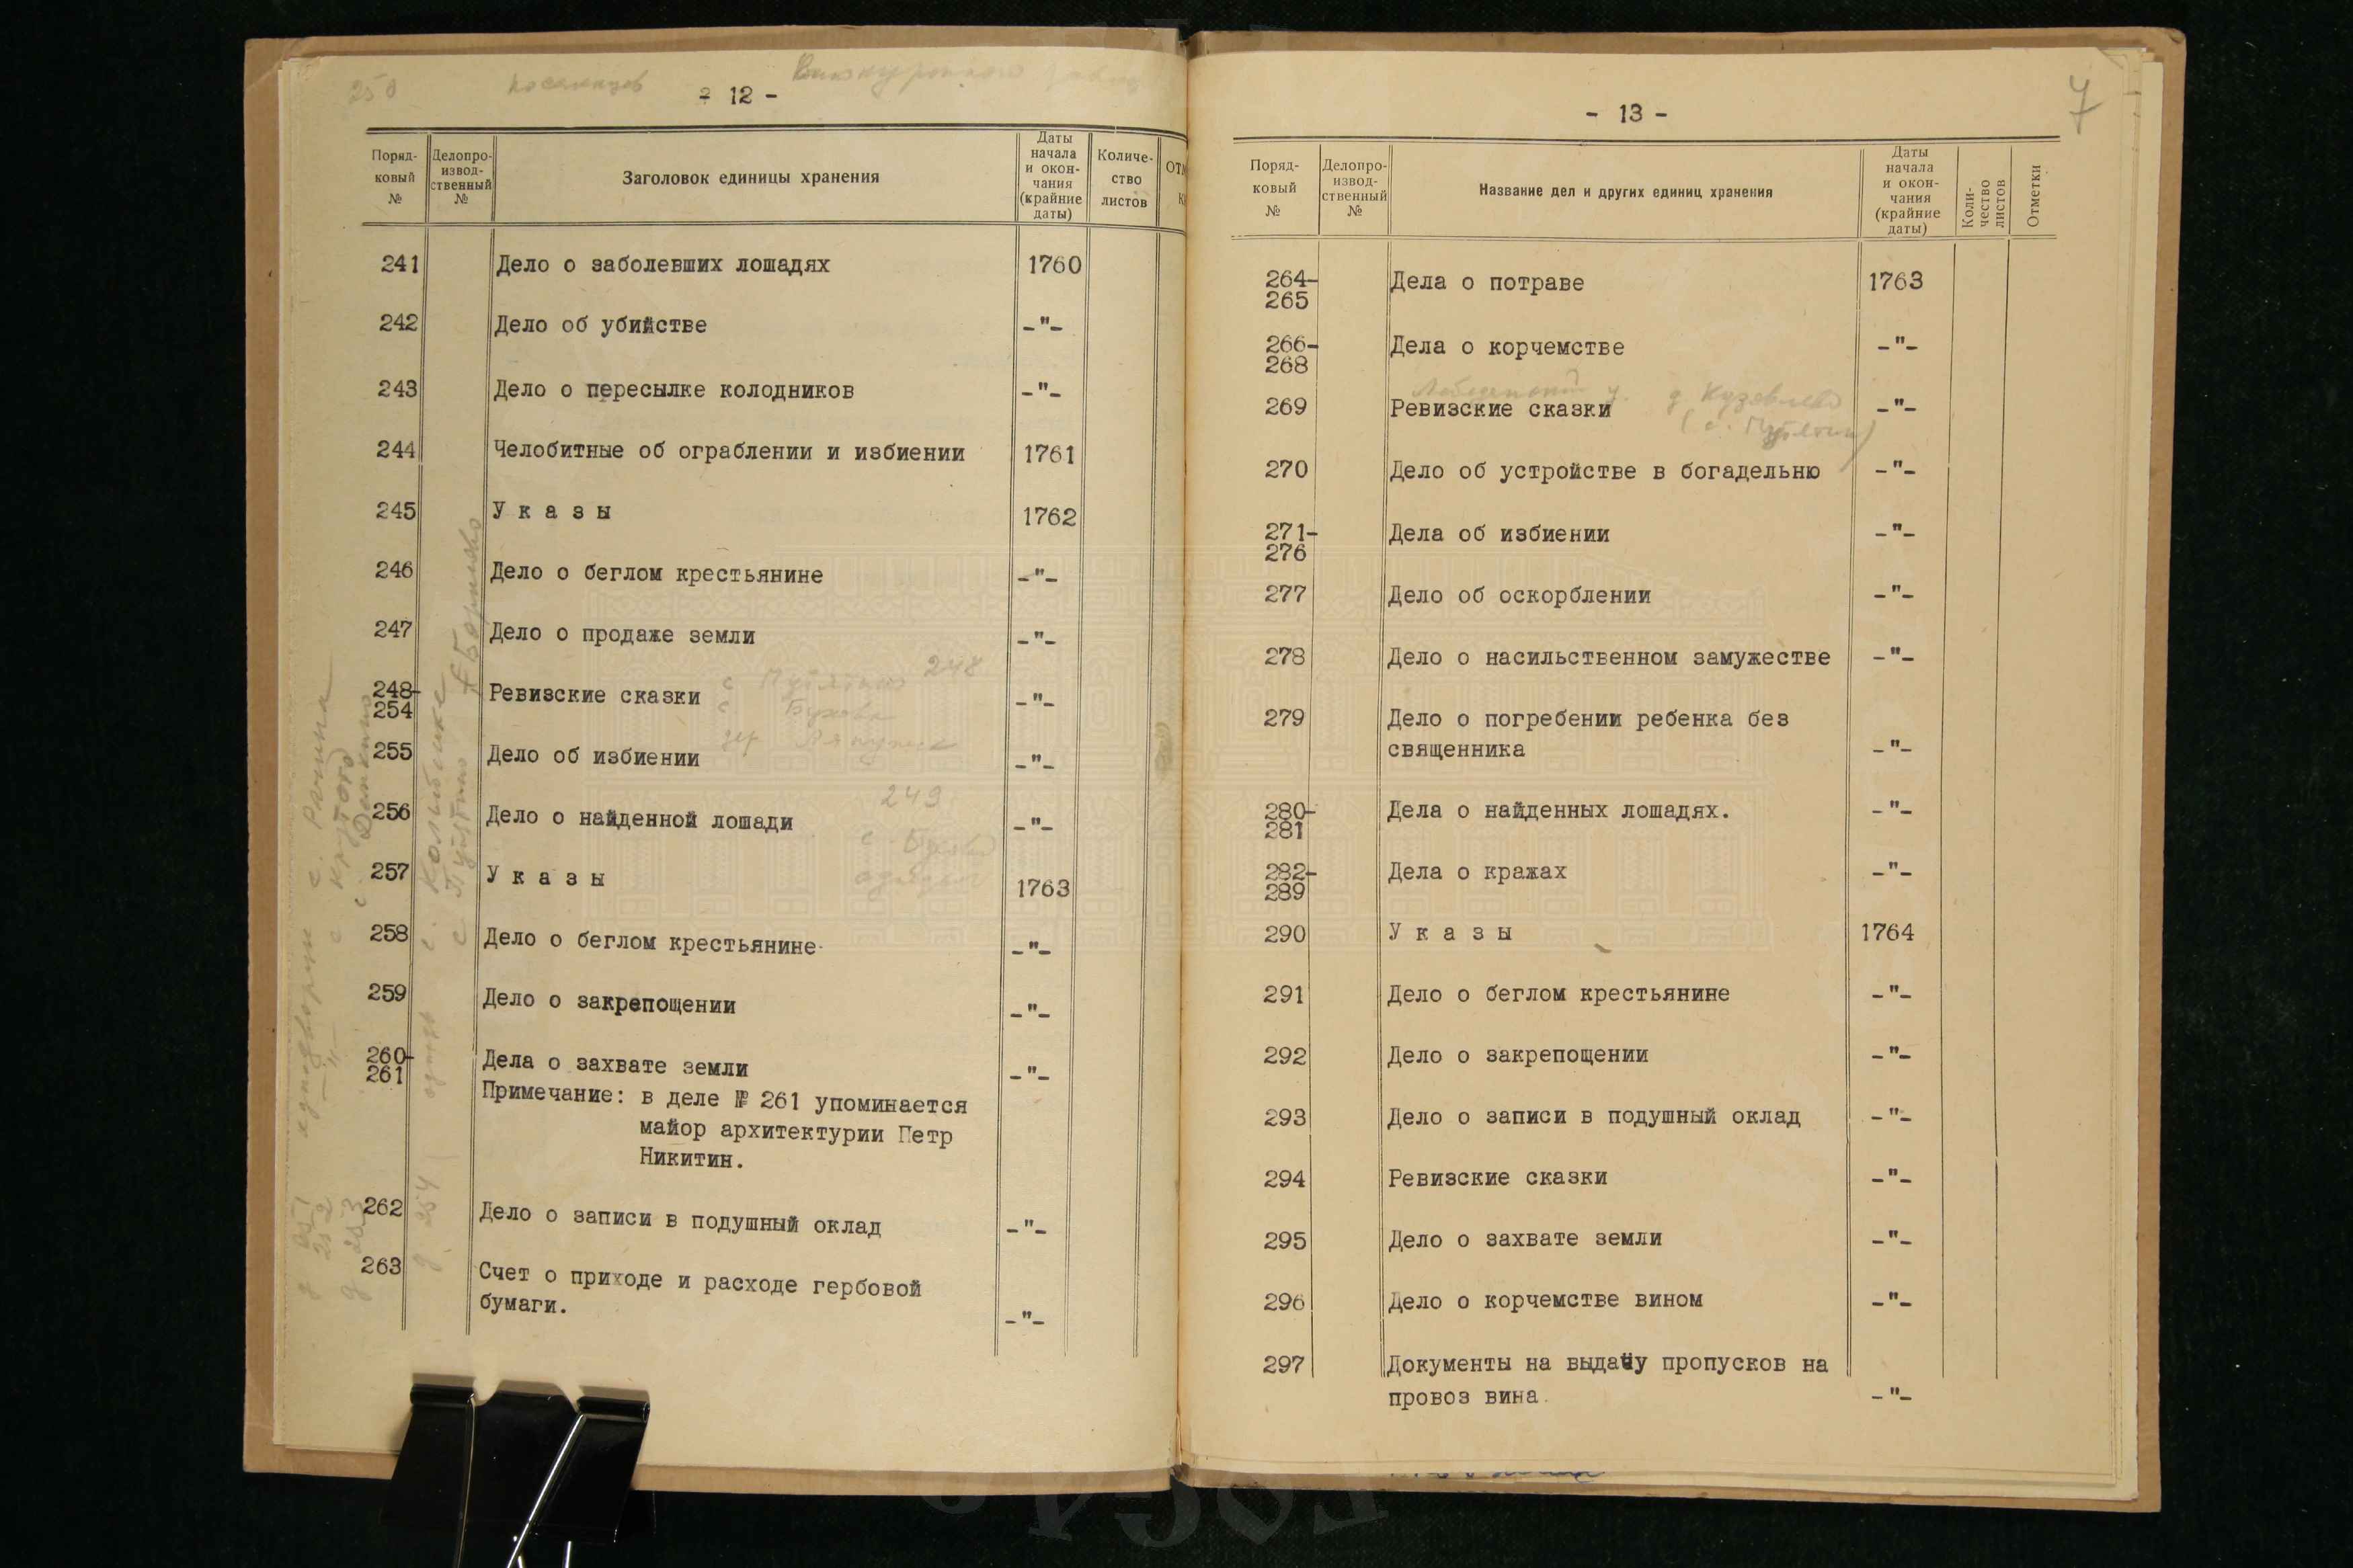 250
- 12 -
Поряд-
ковый
№
Делопро-
извод-
ственный
№
Заголовок единицы хранения
Даты
начала
и окон-
чания
(крайние
даты)
Количе-
ство
листов
241 Дело о заболевших лошадях 1760
242 Дело об убийстве -"-
243 Дело о пересылке колодников -"-
244 Челобитные об ограблении и избиении 1761
245 У к а з ы 1762
246 Дело о беглом крестьянине -"-
247 Дело о продаже земли -"-
248
248-
254 Ревизские сказки -"-
255 Дело об избиении -"-
249
256 Дело о найденной лошади -"-
257 У к а з ы 1763
258 Дело о беглом крестьянине -"-
259 Дело о закрепощении -"-
260-
261 Дела о захвате земли -"-
Примечание: в деле № 261 упоминается
майор архитектурии Петр
Никитин.
262 Дело о записи в подушный оклад -"-
263 Счет о приходе и расходе гербовой
бумаги. -"-
7
- 13 -
Поряд-
ковый
№
Делопро-
извод-
ственный
№
Название дел и других единиц хранения
Даты
начала
и окон-
чания
(крайние
даты)
Коли-
чество
листов
Отметки
264-
265 Дела о потраве 1763
266-
268 Дела о корчемстве -"-
269 Ревизские сказки -"-
270 Дело об устройстве в богадельню -"-
271-
276 Дела об избиении -"-
277 Дело об оскорблении -"-
278 Дело о насильственном замужестве -"-
279 Дело о погребении ребенка без
священника -"-
280-
281 Дела о найденных лошадях. -"-
282-
289 Дела о кражах -"-
290 У к а з ы 1764
291 Дело о беглом крестьянине -"-
292 Дело о закрепощении -"-
293 Дело о записи в подушный оклад -"-
294 Ревизские сказки -"-
295 Дело о захвате земли -"-
296 Дело о корчемстве вином -"-
297 Документы на выдачу пропусков на
провоз вина. -"-